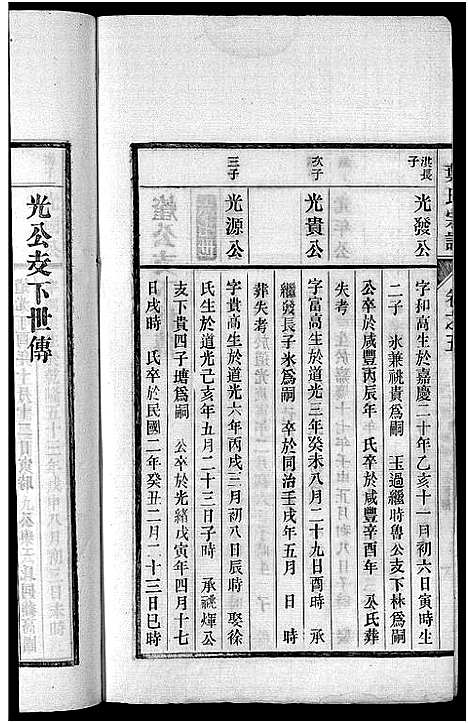 葉氏宗譜 卷之五
洪長子
光發公
字和高生於嘉慶二十年乙亥十一月初六日寅時生
二子 氷兼祧貴爲嗣 玉過繼時魯公支下林爲嗣
公卒於咸豐丙辰年 氏卒於咸豐辛酉年 公氏葬
失考
次子
光貴公
字富高生於道光三年癸未八月二十九日酉時 承
繼發長子氷爲嗣 卒於同治壬戌年五月 日 時
葬失考
三子
光源公
字貴高生於道光六年丙戌三月初八日辰時 娶徐
氏生於道光己亥年五月二十三日子時 承祧煇公
支下貴四子瑭爲嗣 公卒於光緒戊寅年四月十七
日戌時 氏卒於民國二年癸丑二月二十三日巳時
光公支下世傳